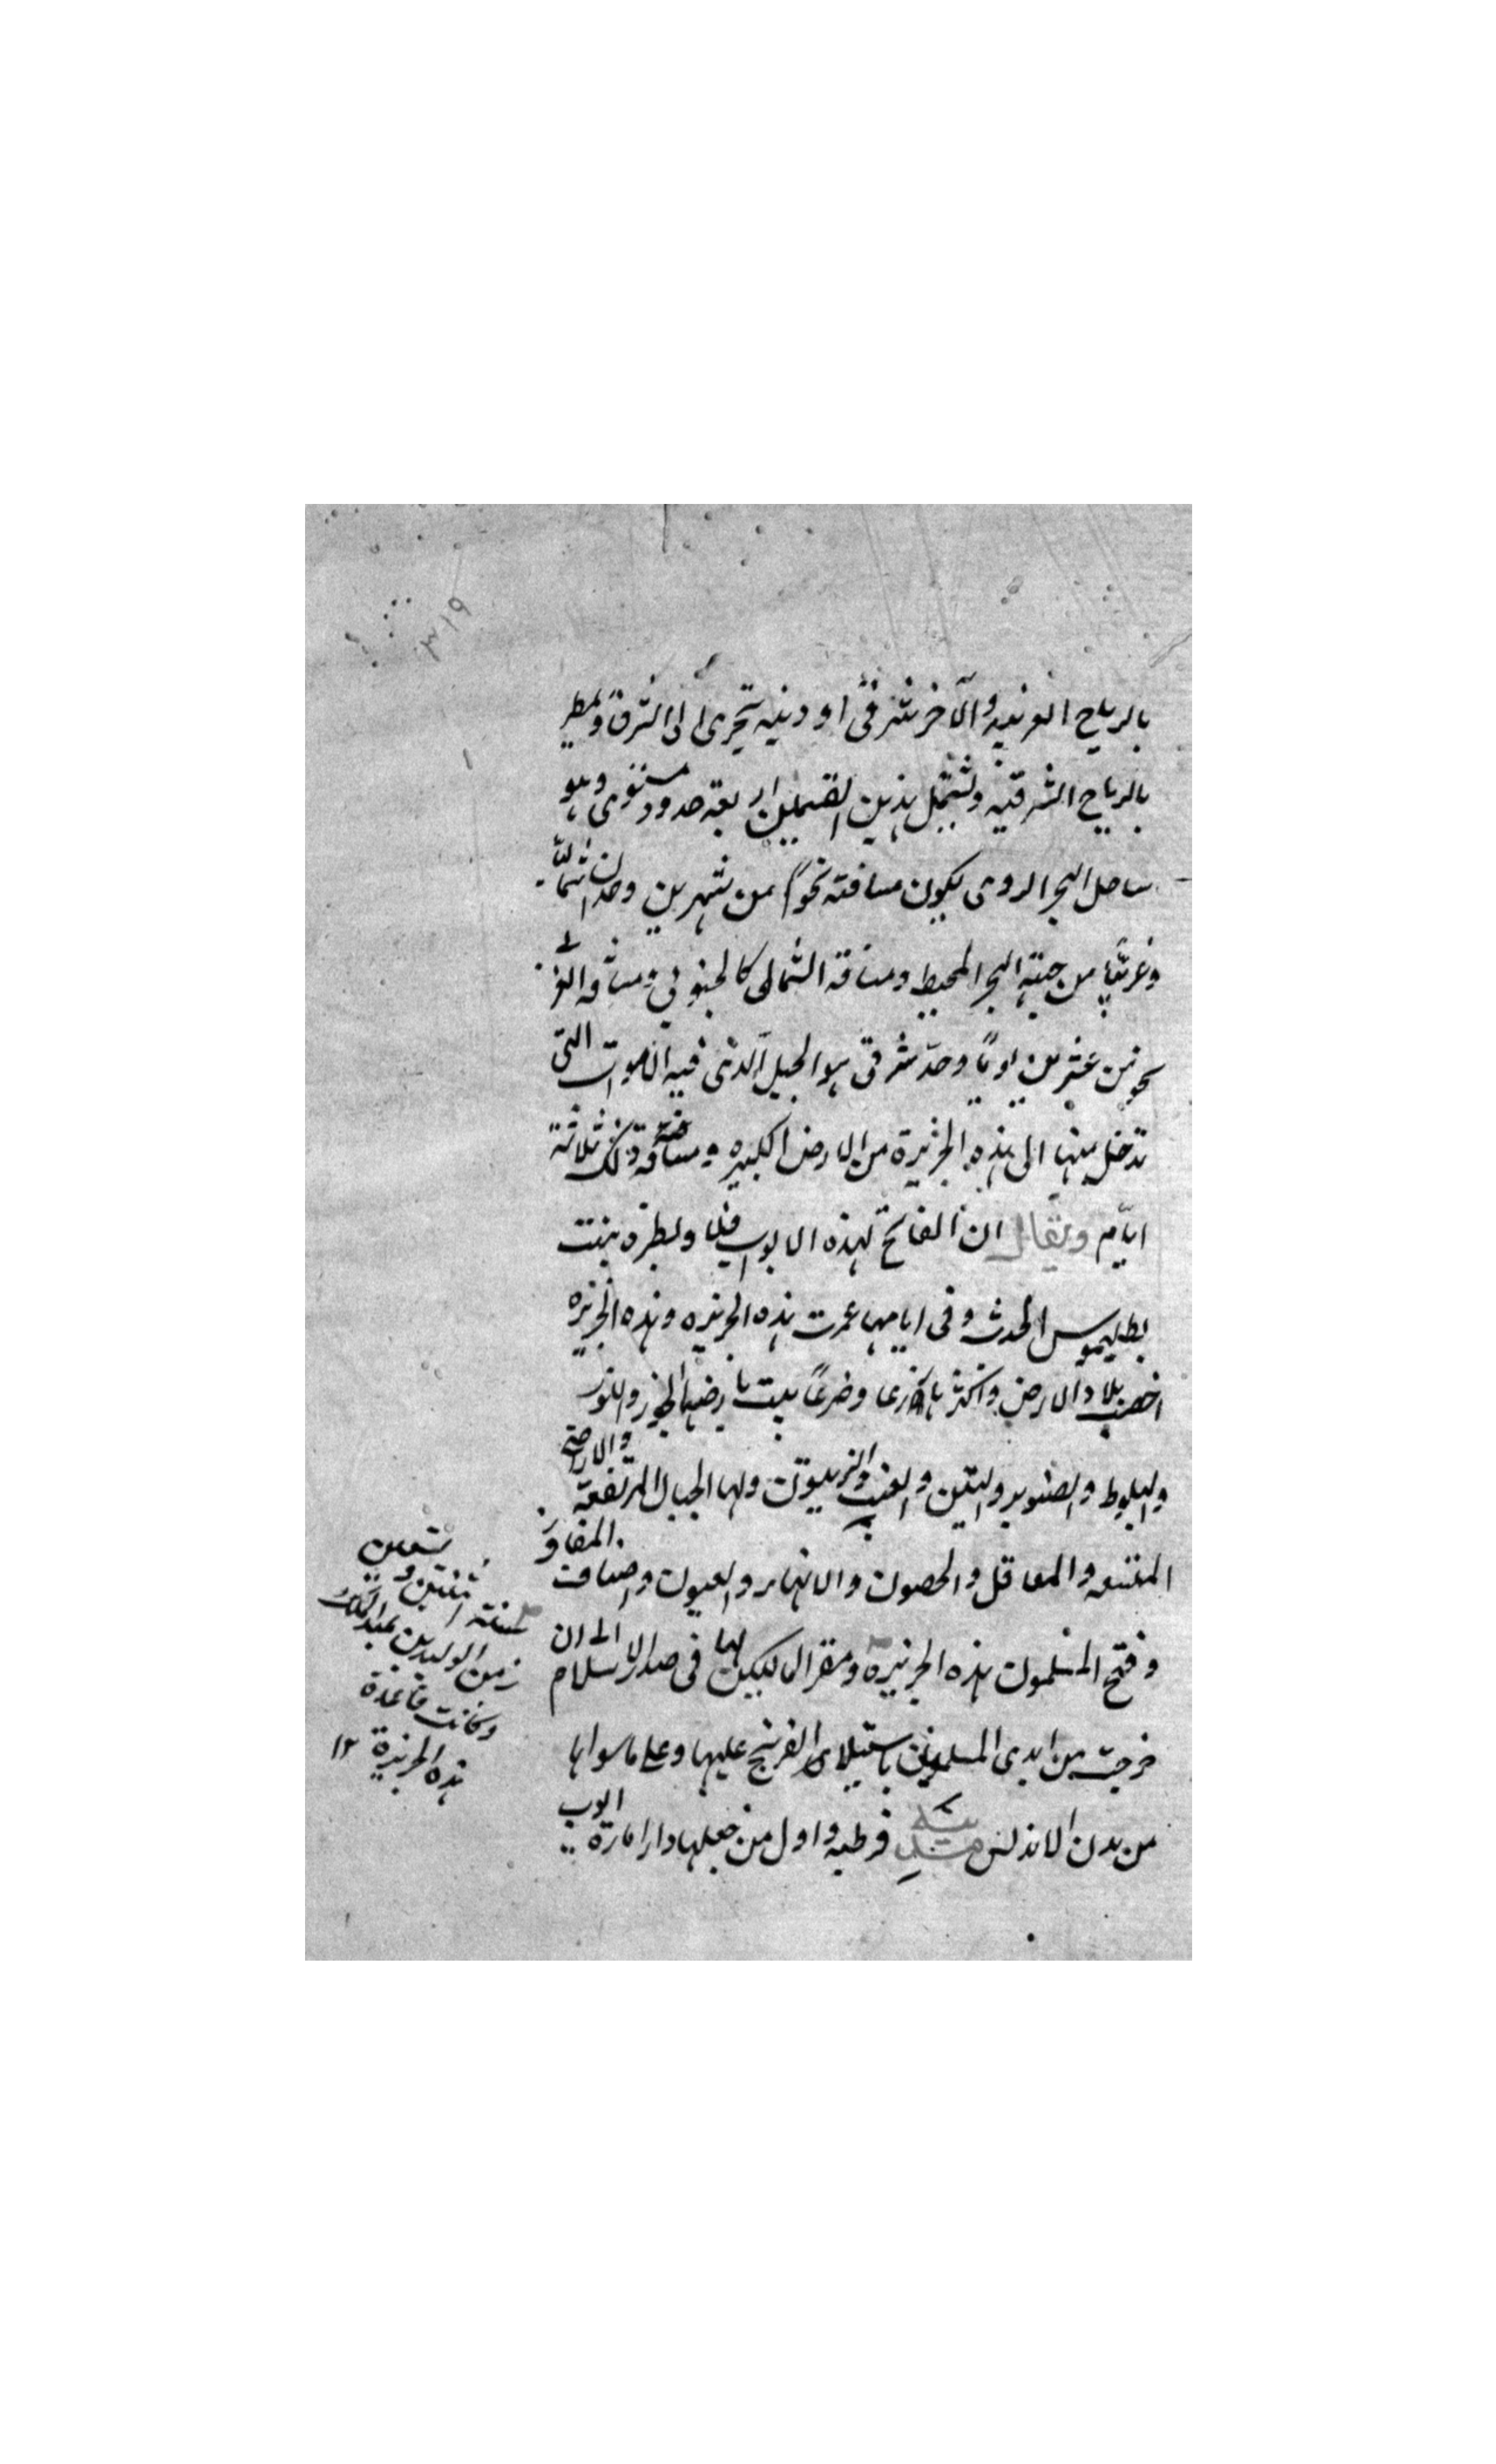 ٣١٩
بالرياح الغربيه والآخر شرقى اوديته تجرى الى الشرق ويمطر
بالرياح الشرقيه وتشتمل هذين القسمين اربعة حدود وهو
ساحل البحر الرومى يكون مسافته نحوًا من شهرين وحدان شماليًّا
وغربيًّا من جهة البحر المحيط ومسافة الشمالى كالجنوبى ومسافة الغربى
نحو من عشرين يومًا وحدّ شرقى هو الجبل الذى فيه الابواب التى
تدخل منها الى هذه الجزيرة من الارض الكبيره ومسافة ذلك ثلاثة
ايام ويقال ان الفاتح لهذه الابواب قلاوبطره بنت
بطليموس المحدث وفى ايامها عمرت هذه الجزيره وهذه الجزيره
اخصب بلاد الارض واكثرها زرعا وضرعًا ينبت بارضها الجوز واللوز
والبلوط والصنوبر والتين والعنب والزيتون ولها الجبال المرتفعة والاراضى
الممتنعه والمعاقل والحصون والانهار والعيون واصناف
وفتح المسلمون هذه الجزيرة ومقر المالكين لها فى صدر الاسلام الى ان
خرجت من ايدى المسلمين باستيلاء الفرنج عليها وعلى ماسواها
من مدن الاندلس قرطبه واول من جعلها دار امارة ايوب
سنة اثنتين وتسعين
زمن الوليد بن عبد الملك
وكانت قاعدة
هذه الجزيرة ١٢